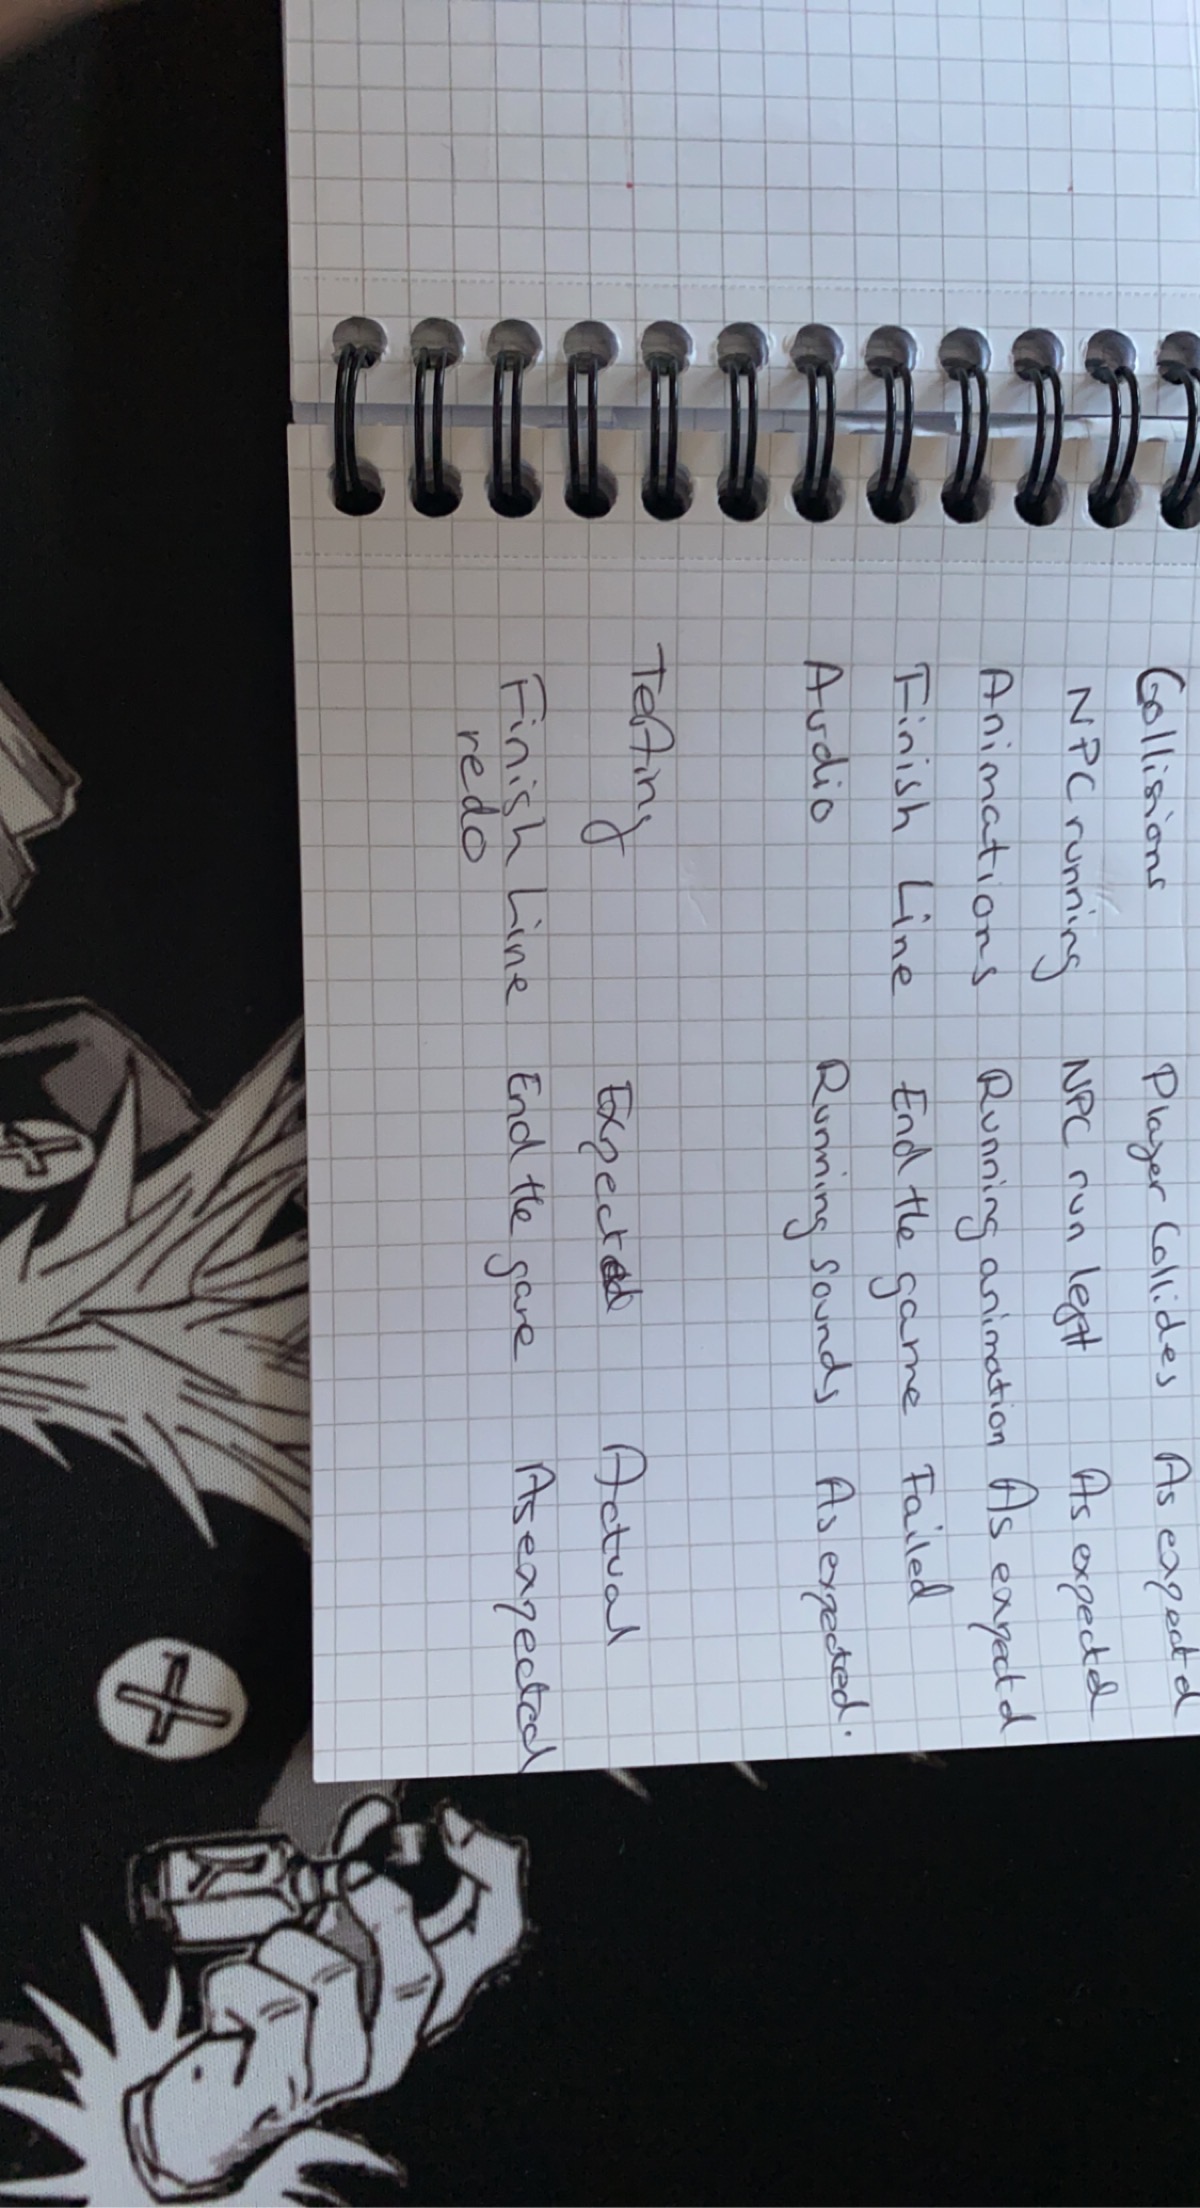 Collisions Player Collides As expectd
NPC running NPC run left As expected
Animations Running animation As expectd
Finish Line End the game Failed
Audio Running sounds As expected.
Testing Expected Actual
Finish Line End the game As expected
redo